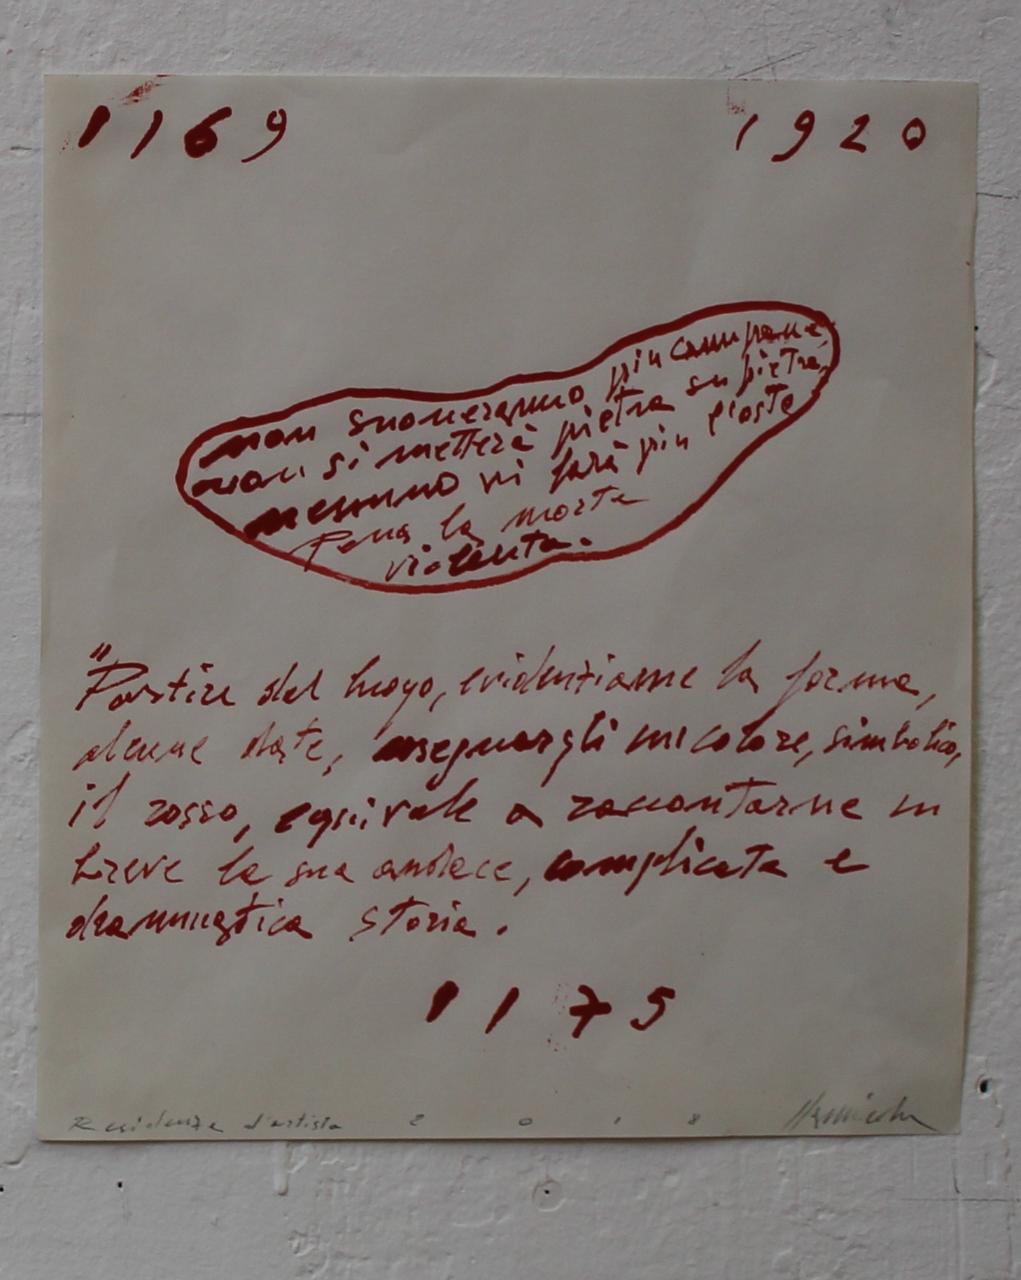 1169 1920
non suoneranno più campane,
non si metterà pietra su pietra,
nessuno vi farà più coste
Pena la morte
violenta.
"Partire dal luogo, evidenziarne la forma,
alcune date, assegnargli un colore, simbolico,
il rosso, equivale a raccontarne in
breve la sua audace, complicata e
drammatica storia.
1175
Residenza d'artista 2018